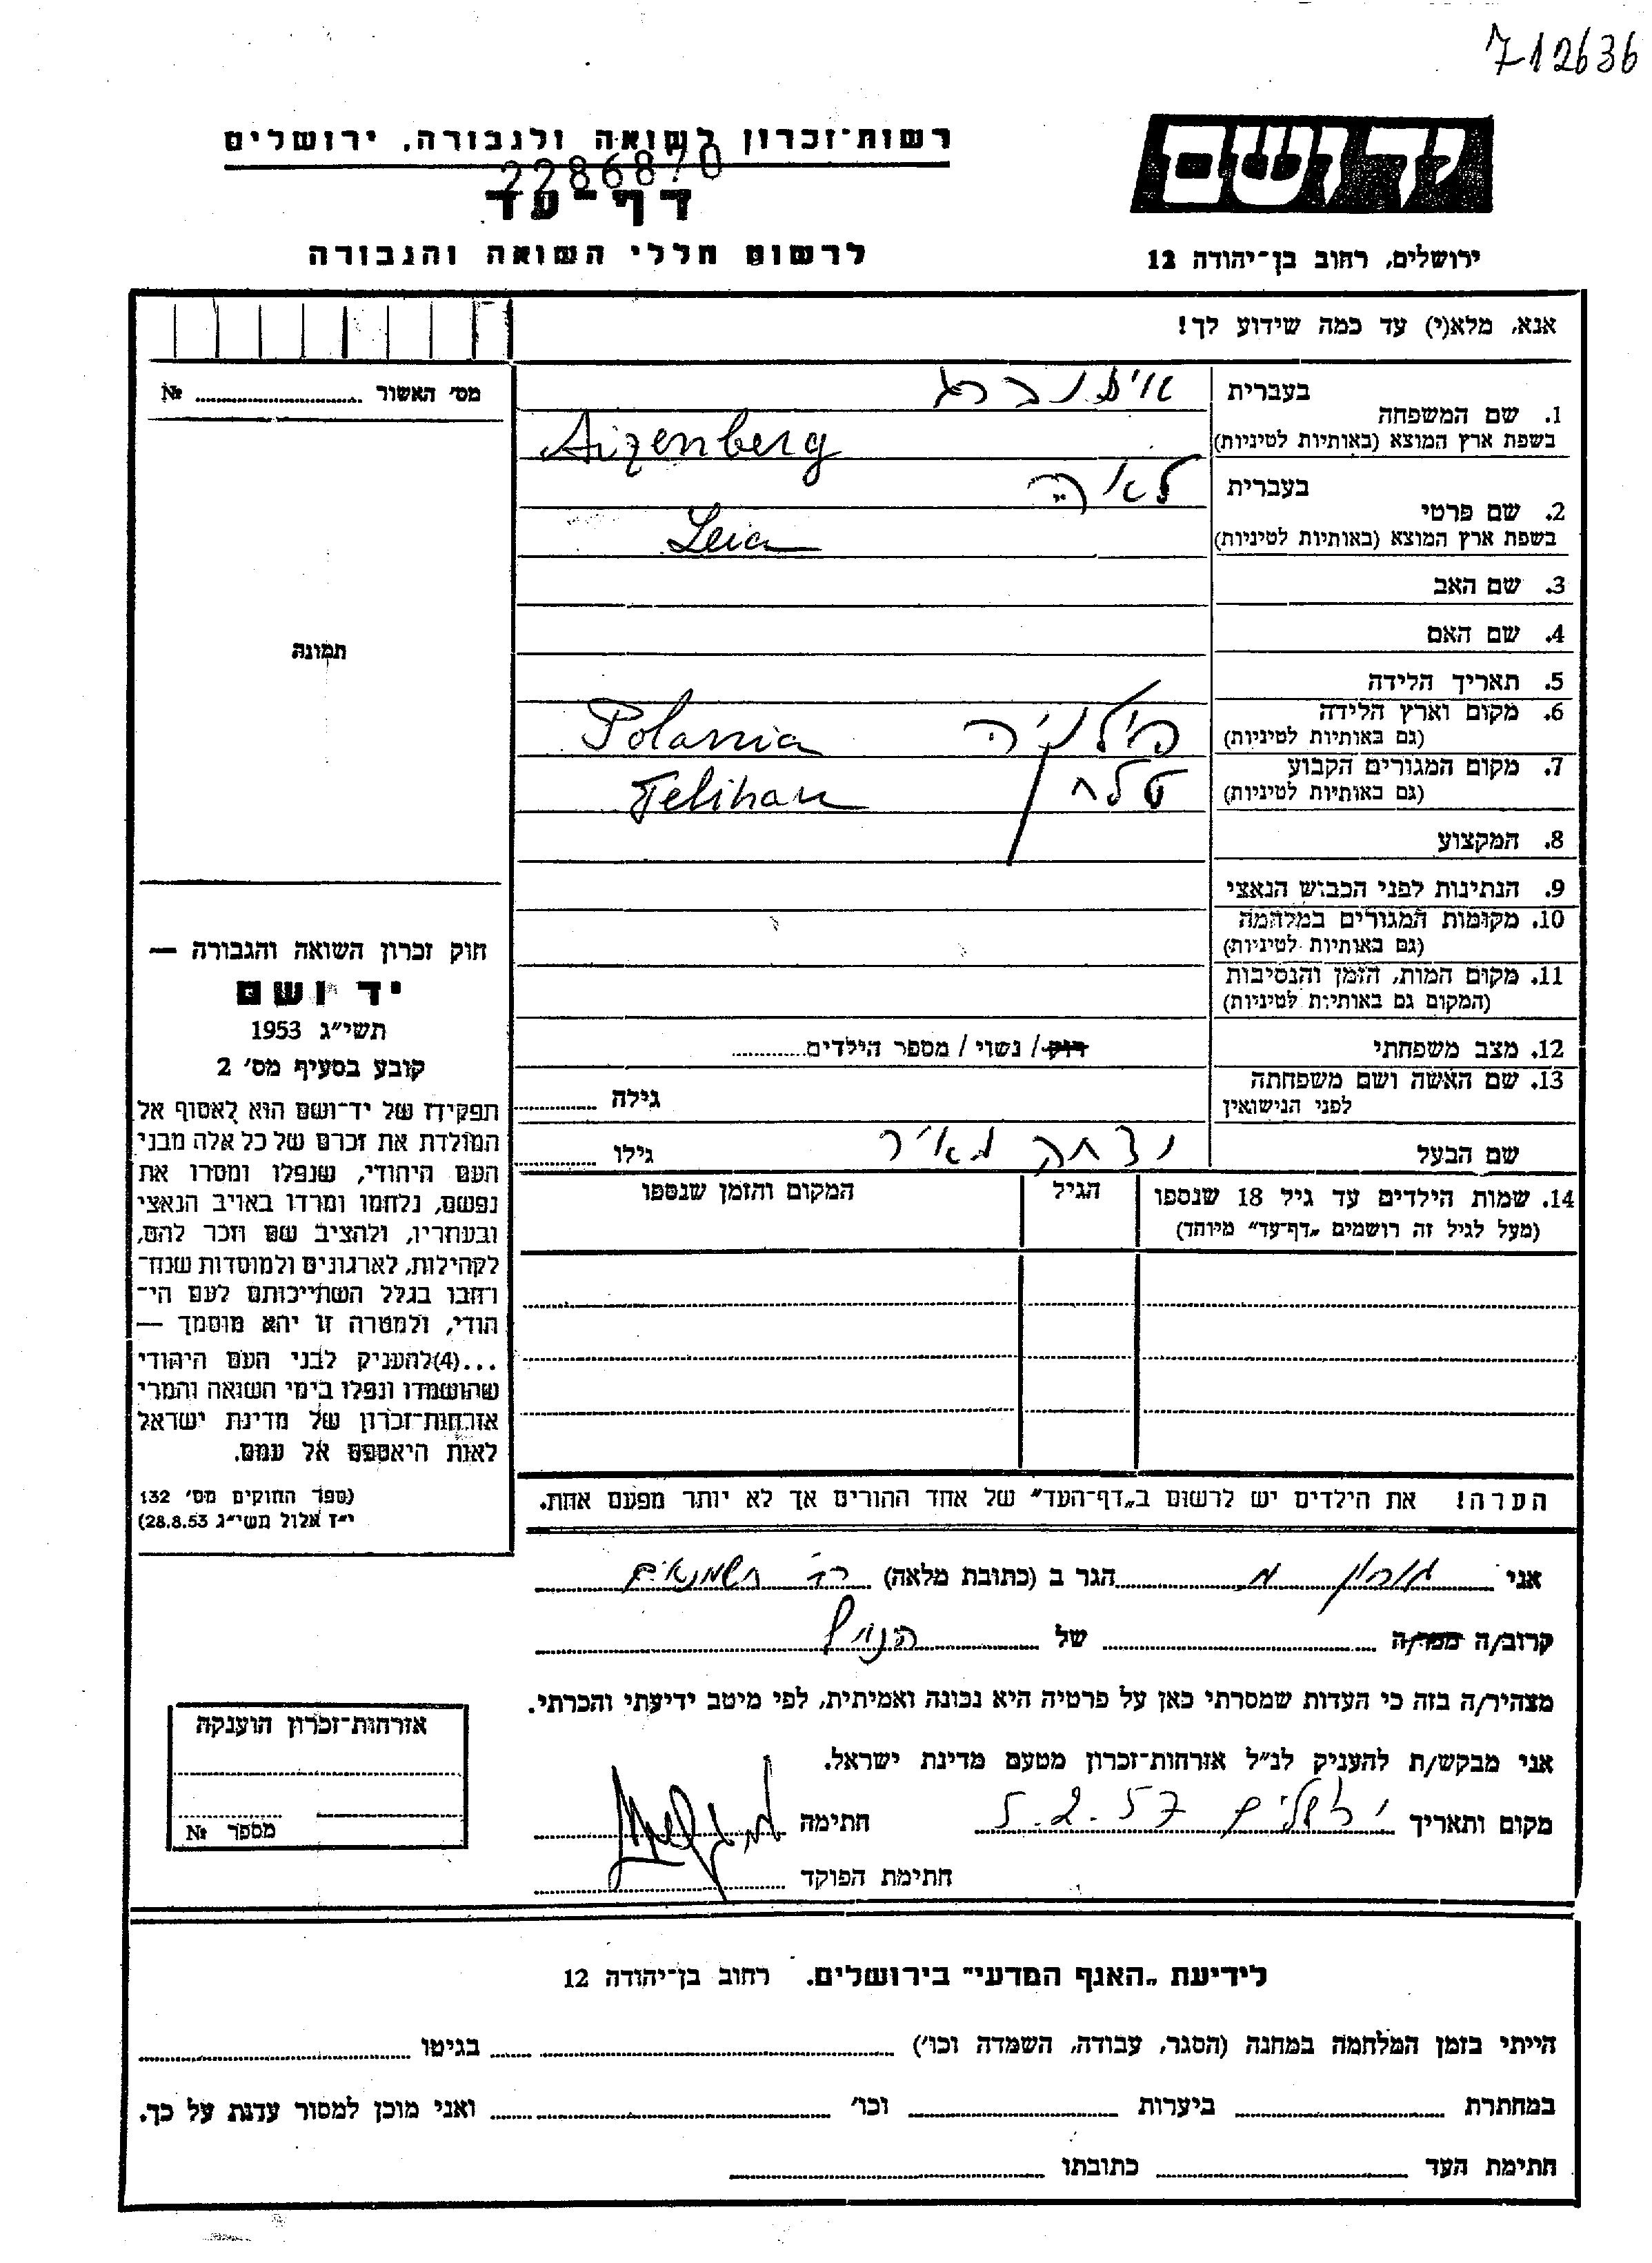 712636
יד ושם
רשות־זכרון לשואה ולגבורה, ירושלים
2286870
דף־עד
לרשום חללי השואה והגבורה
ירושלים, רחוב בן־יהודה 12
אנא, מלא(י) עד כמה שידוע לך!
מס׳ האשור № 
1. שם המשפחה
בעברית
בשפת ארץ המוצא (באותיות לטיניות)
Aizenberg
2. שם פרטי
בעברית לאיה
בשפת ארץ המוצא (באותיות לטיניות)
Leia
3. שם האב
4. שם האם
5. תאריך הלידה
6. מקום וארץ הלידה
(גם באותיות לטיניות)
Polania
7. מקום המגורים הקבוע
(גם באותיות לטיניות)
טלחן Telihan
8. המקצוע
9. הנתינות לפני הכבוש הנאצי
10. מקומות המגורים במלחמה
(גם באותיות לטיניות)
11. מקום המות, הזמן והנסיבות
(המקום גם באותיות לטיניות)
12. מצב משפחתי
רווק / נשוי / מספר הילדים
13. שם האשה ושם משפחתה
לפני הנישואין
גילה
שם הבעל יצחק מאיר
גילו
14. שמות הילדים עד גיל 18 שנספו
(מעל לגיל זה רושמים „דף־עד" מיוחד)
הגיל
המקום והזמן שנספו
הערה! את הילדים יש לרשום ב„דף־העד" של אחד ההורים אך לא יותר מפעם אחת.
תמונה
חוק זכרון השואה והגבורה —
יד ושם
תשי״ג 1953
קובע בסעיף מס׳ 2
תפקידו של יד־ושם הוא לאסוף אל
המולדת את זכרם של כל אלה מבני
העם היהודי, שנפלו ומסרו את
נפשם, נלחמו ומרדו באויב הנאצי
ובעוזריו, ולהציב שם וזכר להם,
לקהילות, לארגונים ולמוסדות שנח־
רחבו בגלל השתייכותם לעם הי־
הודי, ולמטרה זו יהא מוסמך —
...(4)להעניק לבני העם היהודי
שהושמדו ונפלו בימי השואה והמרי
אזרחות־זכרון של מדינת ישראל
לאות היאספם אל עמם.
(ספר החוקים מס׳ 132
י״ז אלול תשי״ג 28.8.53)
אני הגר ב (כתובת מלאה) רח׳ חשמונאים
קרוב/ה מכר/ה של
מצהיר/ה בזה כי העדות שמסרתי כאן על פרטיה היא נכונה ואמיתית, לפי מיטב ידיעתי והכרתי.
אני מבקש/ת להעניק לנ״ל אזרחות־זכרון מטעם מדינת ישראל.
מקום ותאריך ירושלים 5.2.57 חתימה
חתימת הפוקד
אזרחות־זכרון הוענקה
מספר №
לידיעת „האגף המדעי" בירושלים. רחוב בן־יהודה 12
הייתי בזמן המלחמה במחנה (הסגר, עבודה, השמדה וכו׳) בגיטו
במחתרת ביערות וכו׳ ואני מוכן למסור עדות על כך.
חתימת העד כתובתו